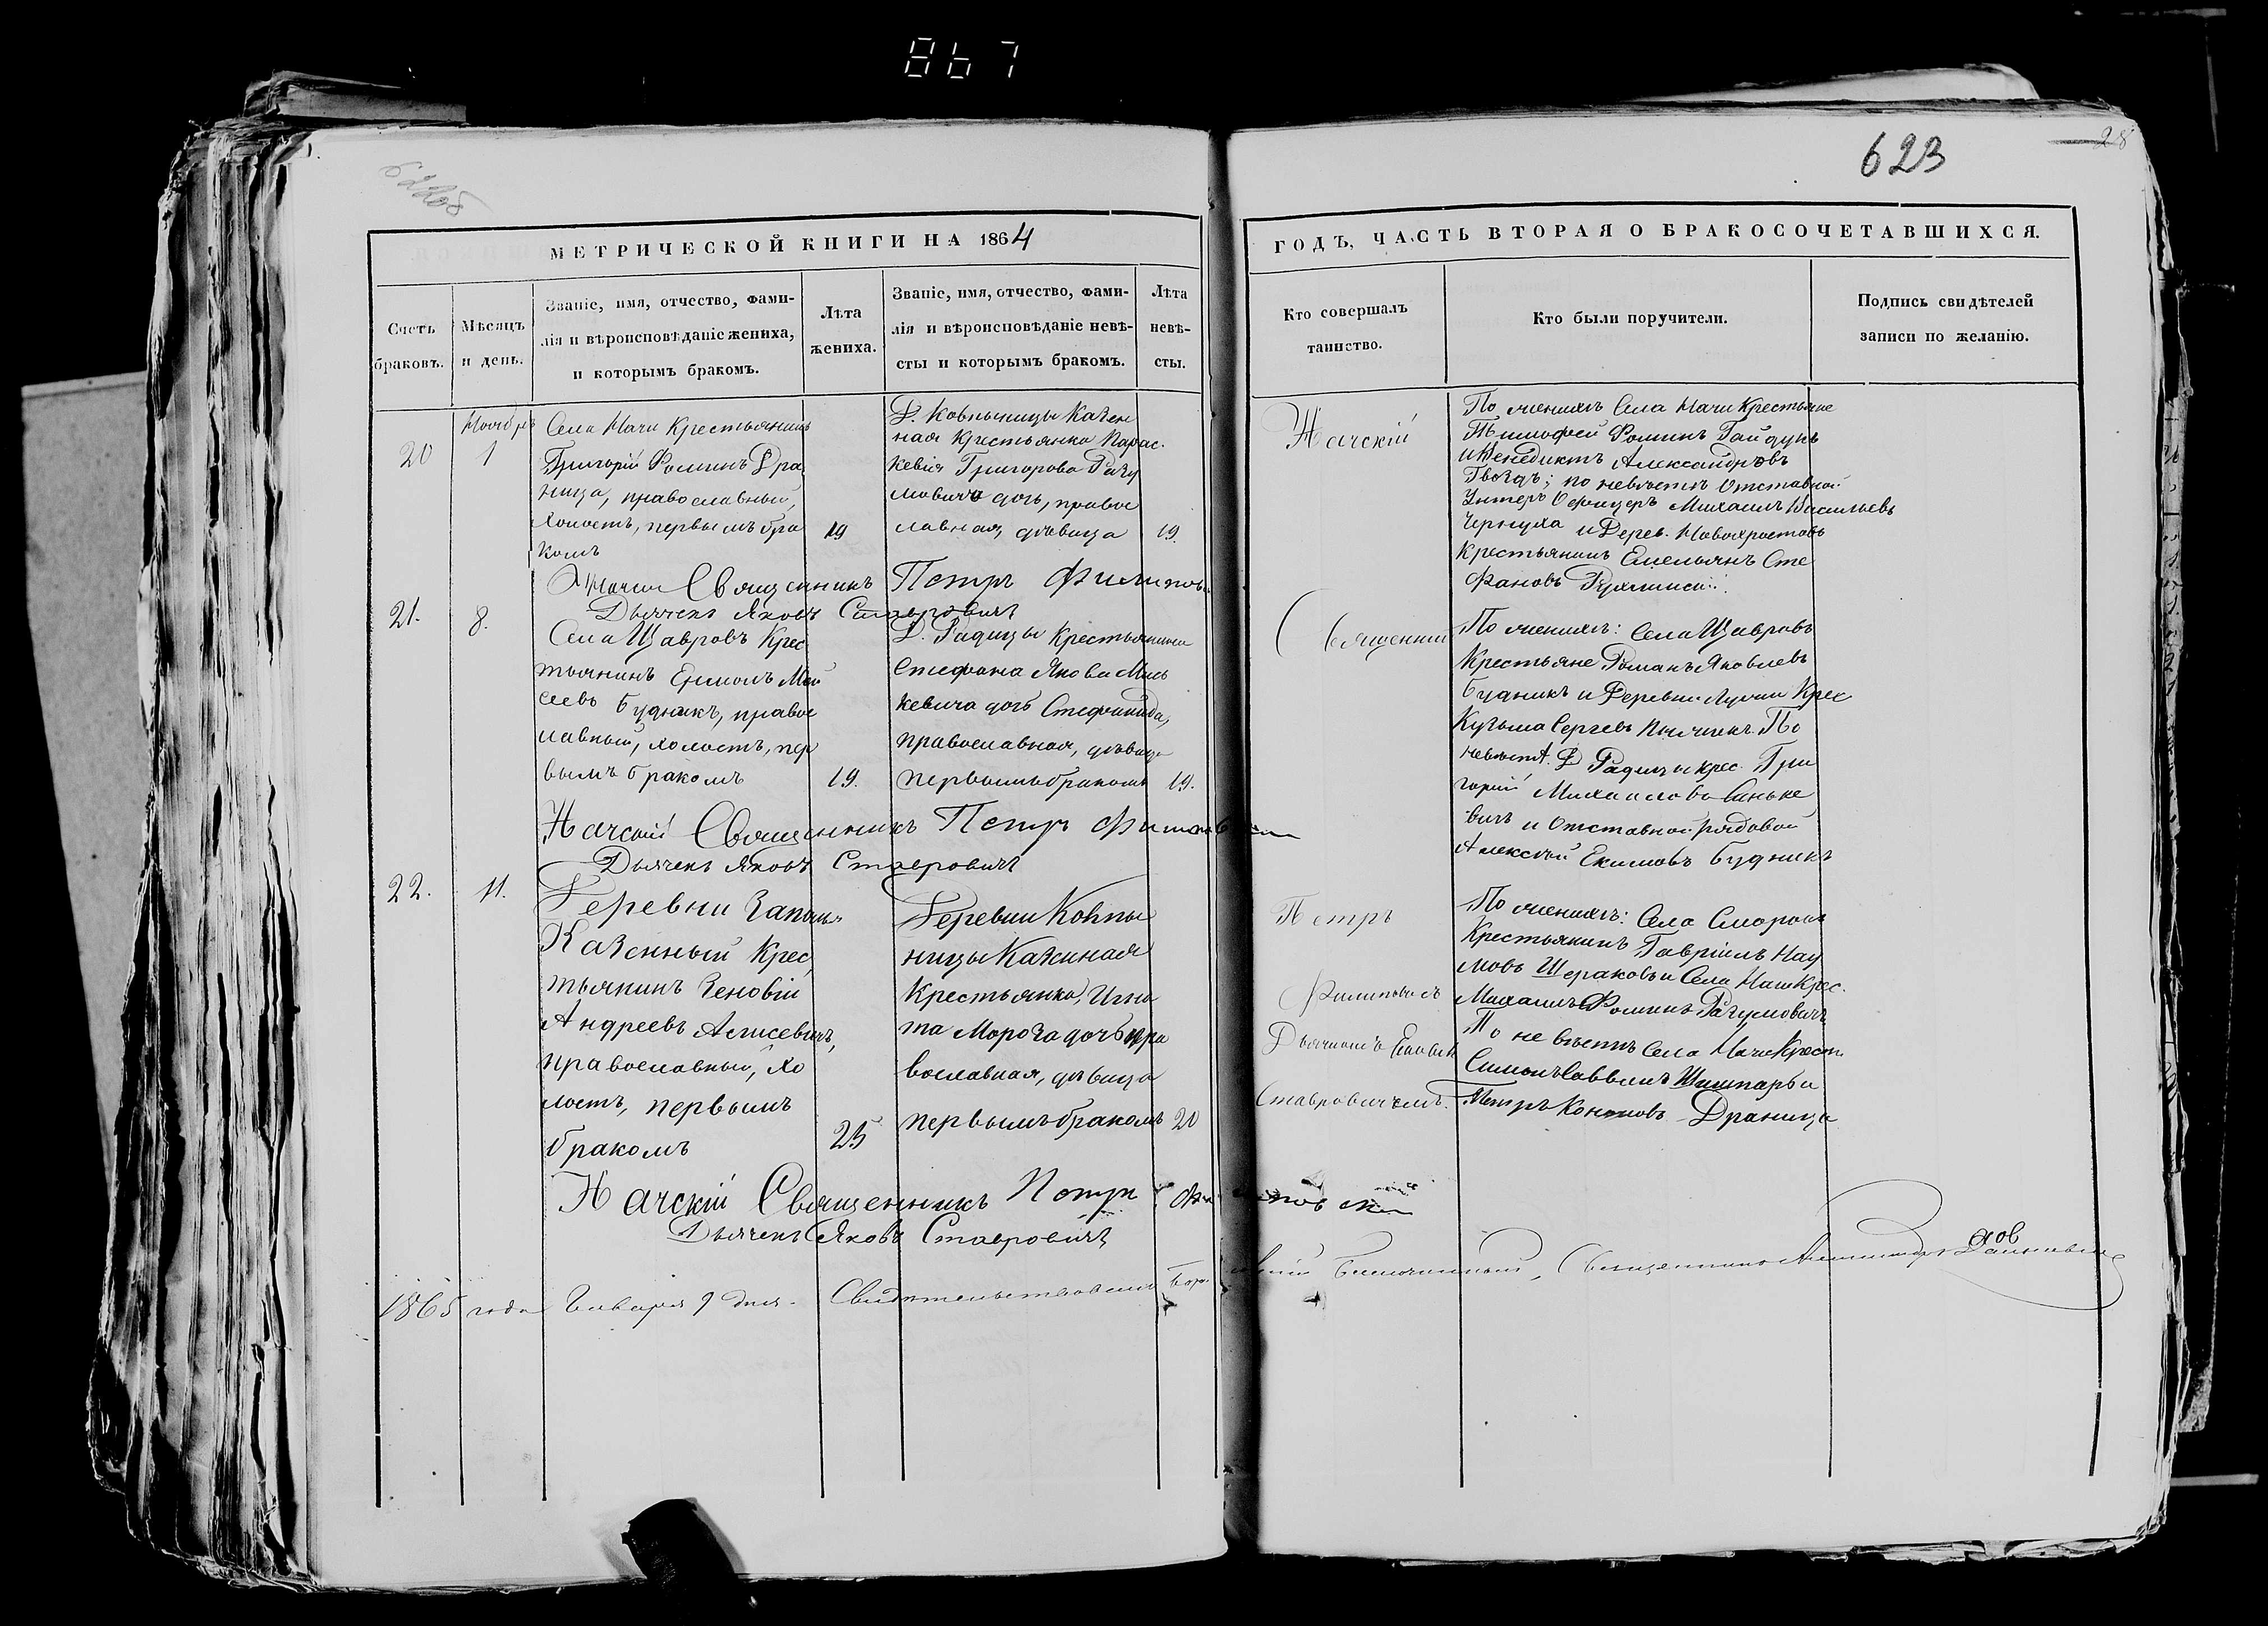 867
623
28
622об
МЕТРИЧЕСКОЙ КНИГИ НА 1864
ГОДЪ, ЧАСТЬ ВТОРАЯ О БРАКОСОЧЕТАВШИХСЯ.
Счетъ
браковъ.
Мѣсяцъ
и день.
Званіе, имя, отчество, фами-
лія и вѣроисповѣданіе жениха,
и которымъ бракомъ.
Лѣта
жениха.
Званіе, имя, отчество, фами-
лія и вѣроисповѣданіе невѣ-
сты и которымъ бракомъ.
Лѣта
невѣ-
сты.
Кто совершалъ
таинство.
Кто были поручители.
Подпись свидѣтелей
записи по желанію.
20
Ноябрь
1
Села Начи Крестьянинъ
Григорій Фоминъ Дра
ница, православный,
холостъ, первымъ бра
комъ
19
Д. Ковпыницы Казен
ная Крестьянка Парас.
кевія Григорова Разу
мовича дочь, правос
лавная, дѣвица
19.
Начскій
По женихѣ Села Начи Крестьяне
Тимофей Фоминъ Гайдукъ
и Венедиктъ Александровъ
Гвоздъ; по невѣстѣ Отставной
Унтеръ Офицеръ Михаилъ Васильевъ
Чернуха и Дерев.
Крестьянинъ Емельянъ Сте
фановъ
Священникъ Петръ
Дьячекъ Яковъ Ставровичъ
21.
8.
Села Щавровъ Крес
тьянинъ Мои
сеевъ Будникъ, правос
лавный, холостъ, пер
вымъ бракомъ
19.
Д. Гадицы Крестьянина
Стефана Якова Мись
кевича дочь Стефанида,
православная, дѣвица
первымъ бракомъ
19.
Священникъ
По женихѣ: Села Щавровъ
Крестьяне Романъ Яковлевъ
Будникъ и Деревни Крес
Кузьма Сергеевъ По
невѣст. Д Гадицы крес. Гри
горій Михаиловъ Саньке
вичъ и Отставной рядовой
Алексѣй Екимовъ Будникъ
Начскій Священникъ Петръ
Дьячекъ Яковъ Ставровичъ
22.
11.
Деревни
Казенный Крес
тьянинъ Зеновій
Андреевъ Алисевичъ,
православный, хо
лостъ, первымъ
бракомъ
25
Деревни Ковпы
ницы Казенная
Крестьянка, Игна
та Мороза дочь пра
вославная, дѣвица
первымъ бракомъ
20
Петръ
Дьячкомъ
Ставровичемъ.
По женихѣ: Села
Крестьянинъ Гавріилъ Нау
мовъ и Села Начи Крес.
Михаилъ Фоминъ Разумовичъ
По невѣстѣ Села Начи Крест.
Симонъ Саввинъ и
Петръ Кононовъ Драница
Начскій Священникъ Петръ
Дьячекъ Яковъ Ставровичъ
1865 года Января 9 дня. Свидѣтельствовалъ Благочинный, Священникъ